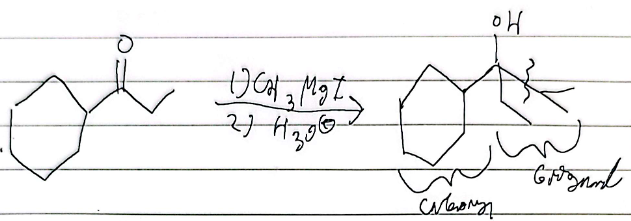 O
OH
1) CH3MgI
2) H3O⊕
Carbonyl
Grignard